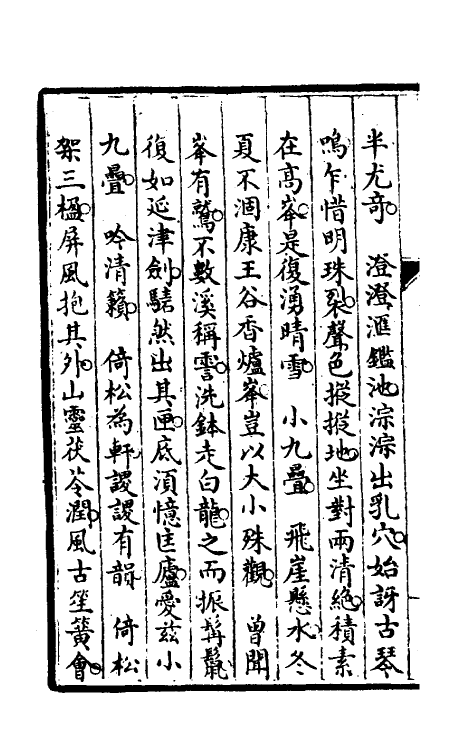 半尤竒　澄澄滙鑑池淙淙出乳穴始訝古琴
鳴乍惜明珠裂聲色摐摐地坐對兩清絶積素
在髙峯是復湧晴雪　小九疊　飛崖懸水冬
夏不涸康王谷香爐峯豈以大小殊觀　曾聞
峯有鷲不數溪稱霅洗鉢走白龍之而振髯鬛
復如延津劍騞然出其匣底湏憶匡廬愛兹小
九疊　吟清籟　倚松為軒謖謖有韻　倚松
架三楹屏風抱其外山靈茯苓潤風古笙簧會